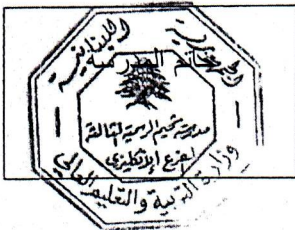 الجمهورية اللبنانية
خاتم المدرسة
مدرسة شحيم الرسمية الثالثة
الفرع الإنكليزي
وزارة التربية والتعليم العالي